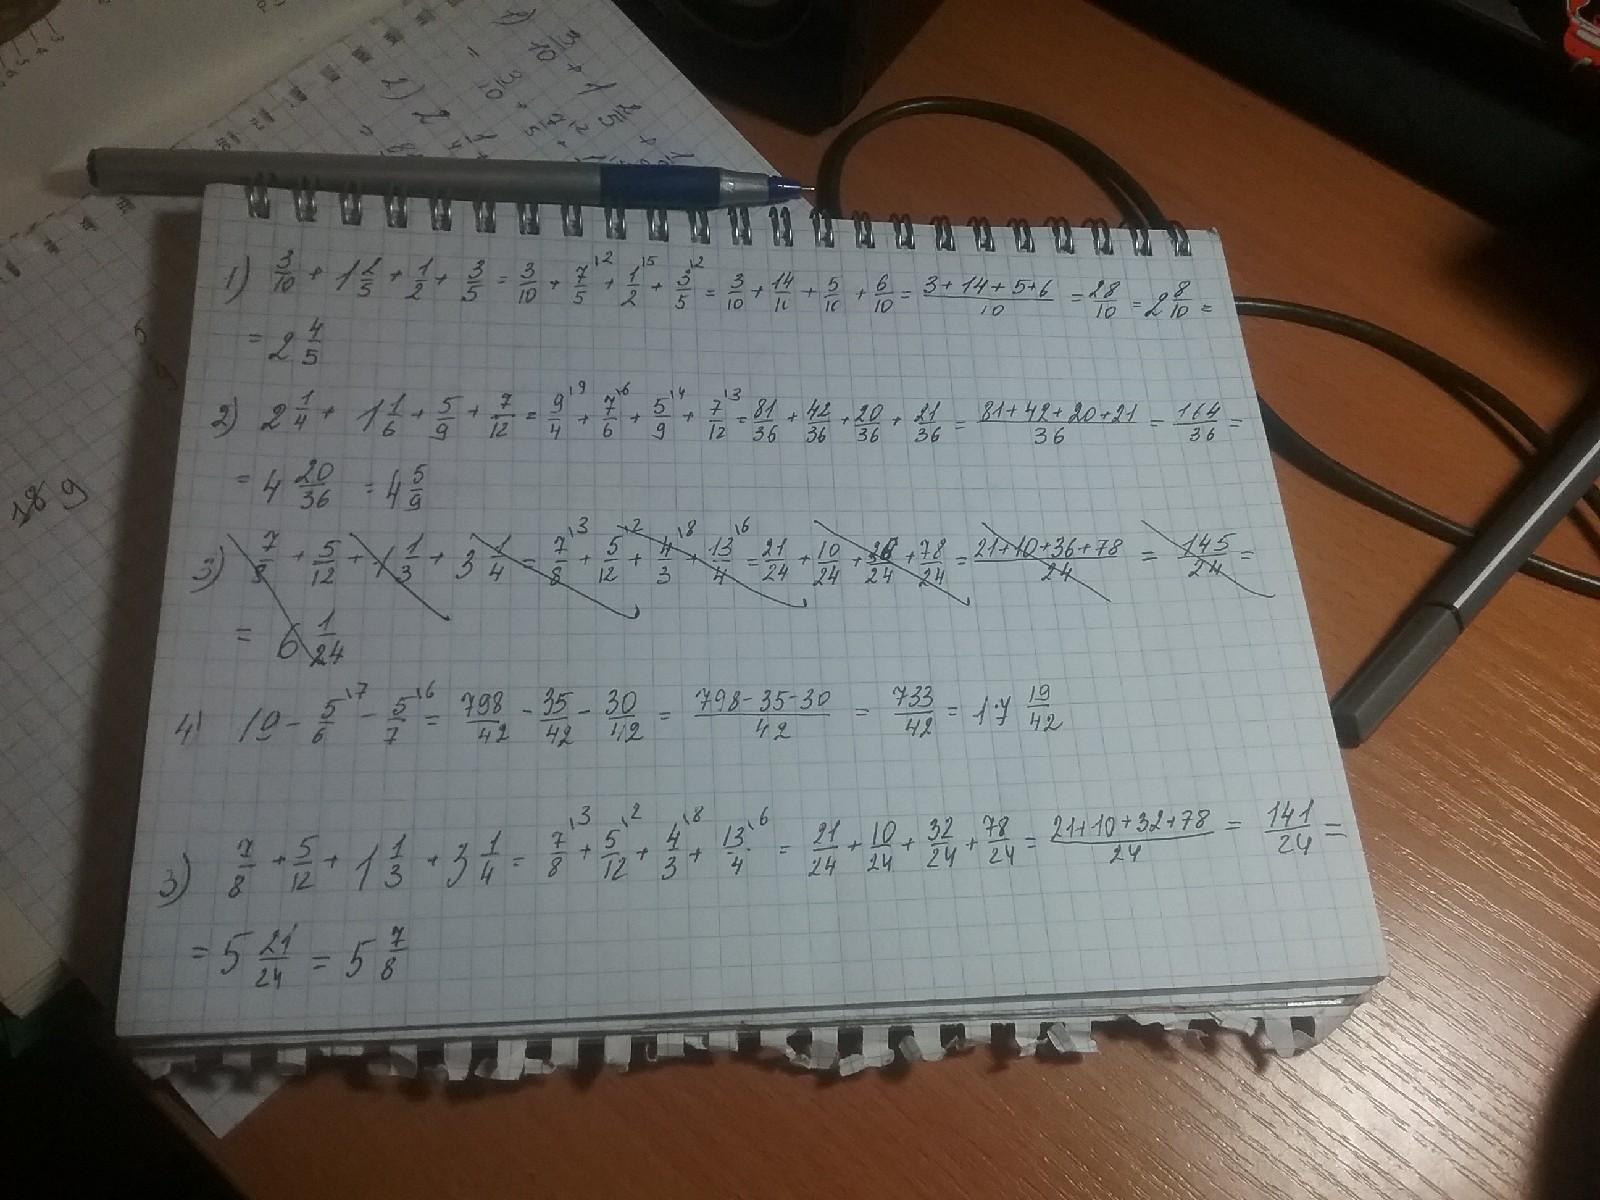 1) 3/10 + 1 2/5 + 1/2 + 3/5 = 3/10 + 7/5 \2 + 1/2 \5 + 3/5 \2 = 3/10 + 14/10 + 5/10 + 6/10 = 3+14+5+6/10 = 28/10 = 2 8/10 =
= 2 4/5
2) 2 1/4 + 1 1/6 + 5/9 + 7/12 = 9/4 \9 + 7/6 \6 + 5/9 \4 + 7/12 \3 = 81/36 + 42/36 + 20/36 + 21/36 = 81+42+20+21/36 = 164/36 =
= 4 20/36 = 4 5/9
3) 7/8 + 5/12 + 1 1/3 + 3 1/4 = 7/8 \3 + 5/12 \2 + 4/3 \8 + 13/4 \6 = 21/24 + 10/24 + 36/24 + 78/24 = 21+10+36+78/24 = 145/24 =
= 6 1/24
4) 19 - 5/6 \7 - 5/7 \6 = 798/42 - 35/42 - 30/42 = 798-35-30/42 = 733/42 = 17 19/42
3) 7/8 + 5/12 + 1 1/3 + 3 1/4 = 7/8 \3 + 5/12 \2 + 4/3 \8 + 13/4 \6 = 21/24 + 10/24 + 32/24 + 78/24 = 21+10+32+78/24 = 141/24 =
= 5 21/24 = 5 7/8
1) 3/10 + 1 2/5 +
= 3/10 + 7/5
2) 2 1/4
18 9